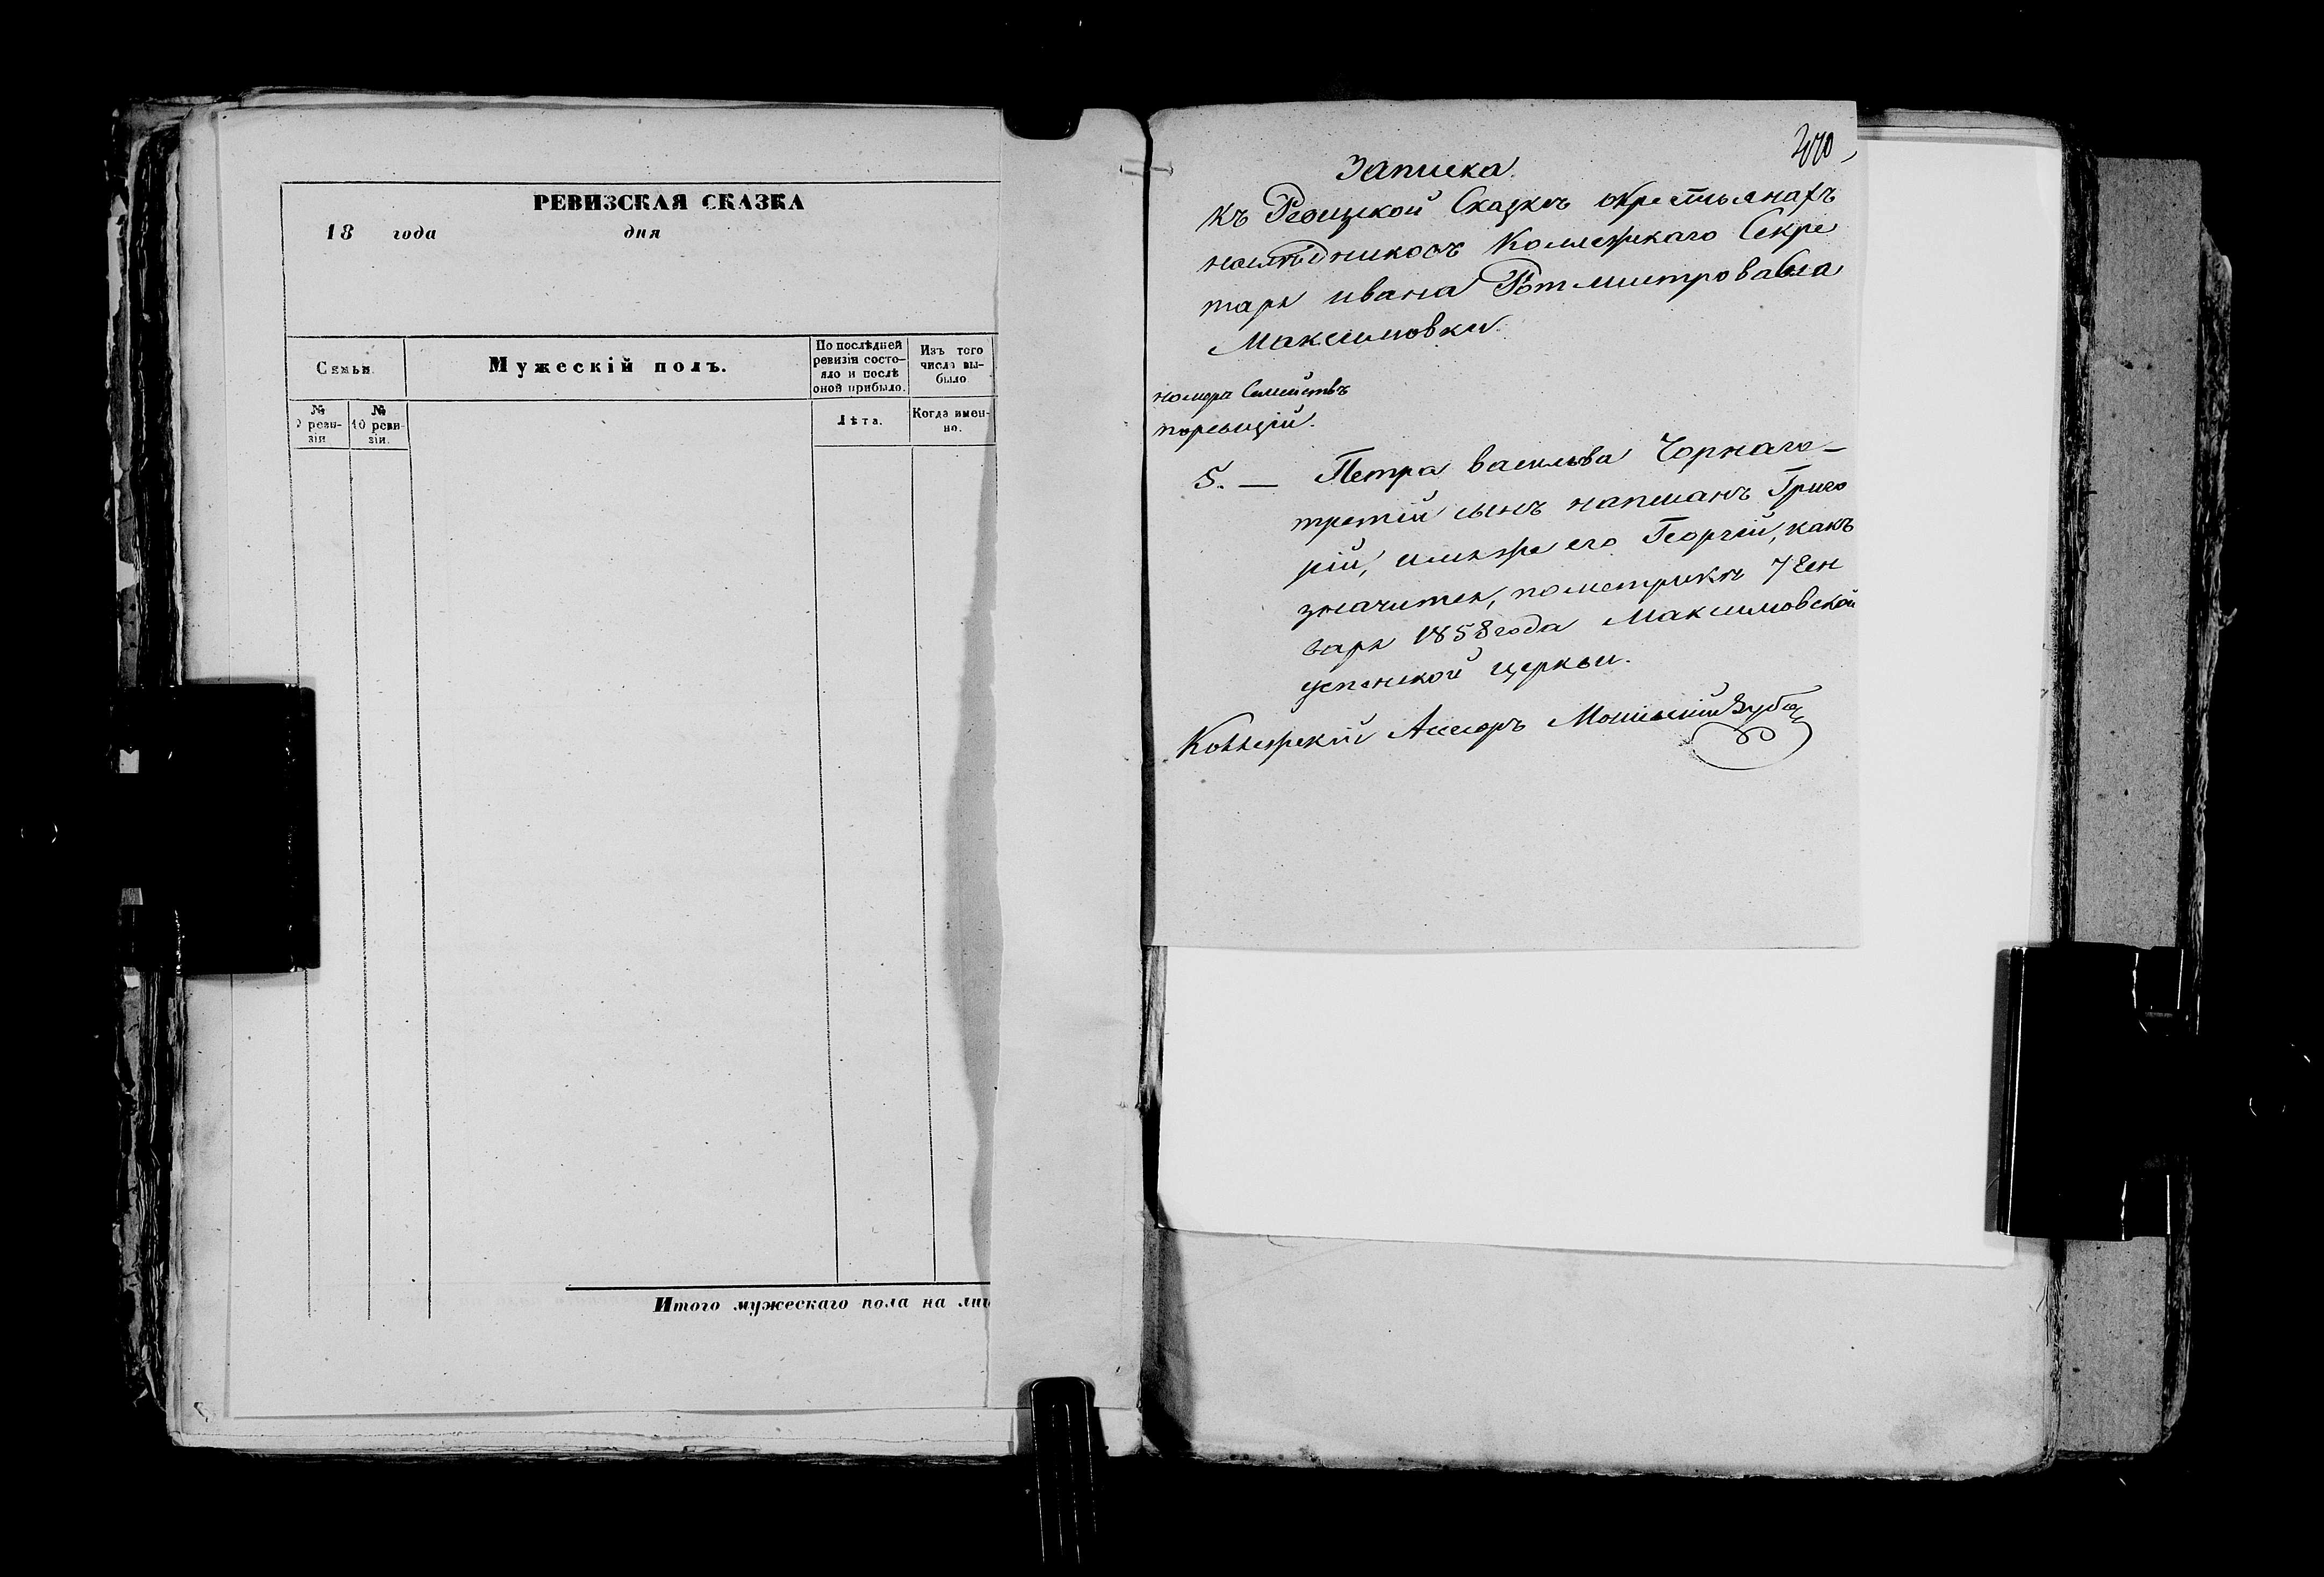 РЕВИЗСКАЯ СКАЗКА
18 года дня
Семьи.
Мужескій полъ.
По послѣдней
ревизіи состо-
яло и послѣ
оной прибыло.
Изъ того
числа вы-
было
№
9 реви-
зіи
№
10 реви-
зіи.
Лѣта.
Когда имен-
но.
Итого мужескаго пола на лиц
Записка.
къ Ревизкой Сказкѣ окрестьянахъ
наслѣдниковъ Коллежскаго Секре
таря ивана
Максимовки.
номера Семействъ
поревизіи.
5. — Петра васильва Чорнаго —
третій сынъ написанъ Григо
рій, имяже его Георгій, какъ
значится, пометрикѣ 7 Ген
варя 1858 года Максимовской
успенской церкви.
Коллежскій Асесоръ